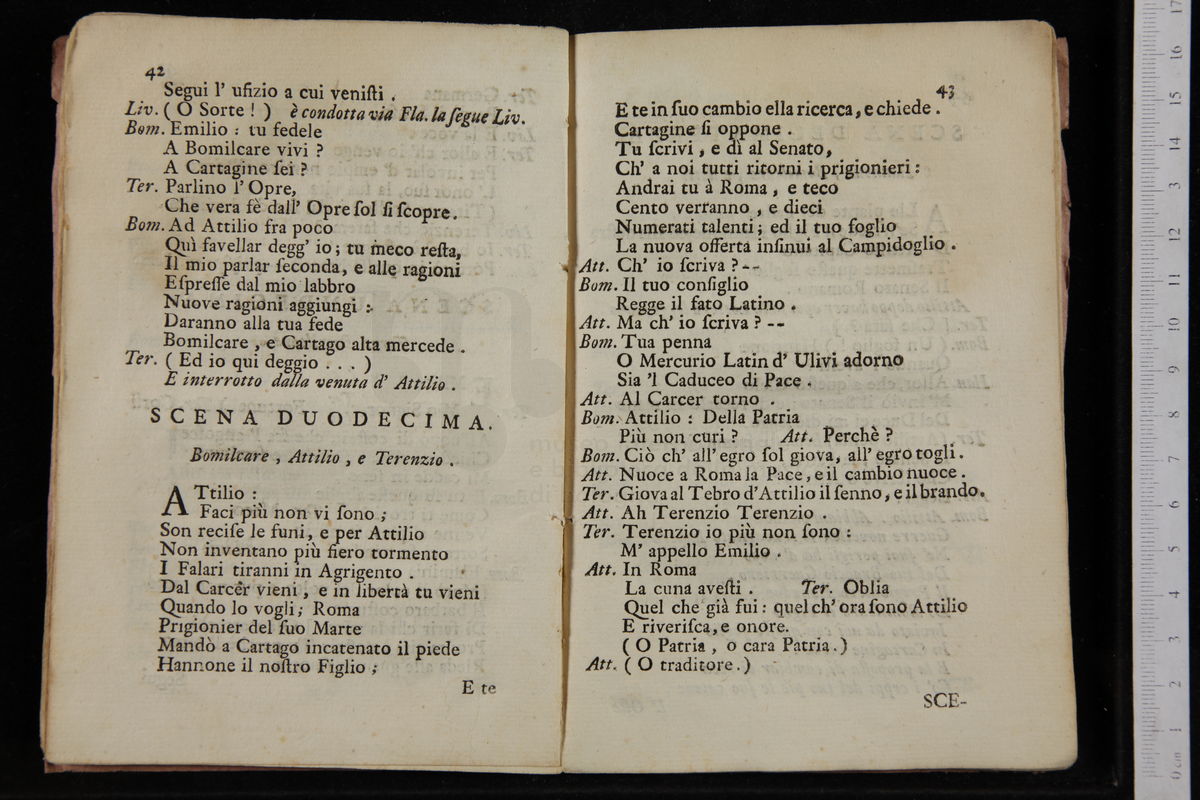 42
Segui l' ufizio a cui veniſti .
Liv. ( O Sorte ! ) è condotta via Fla. la ſegue Liv.
Bom. Emilio : tu fedele
A Bomilcare vivi ?
A Cartagine ſei ?
Ter. Parlino l' Opre,
Che vera fè dall' Opre ſol ſi ſcopre.
Bom. Ad Attilio fra poco
Quì favellar degg' io ; tu meco reſta,
Il mio parlar ſeconda, e alle ragioni
Eſpreſſe dal mio labbro
Nuove ragioni aggiungi :
Daranno alla tua fede
Bomilcare , e Cartago alta mercede .
Ter. ( Ed io qui deggio . . . )
E interrotto dalla venuta d' Attilio .
SCENA DUODECIMA.
Bomilcare , Attilio , e Terenzio .
ATtilio :
Faci più non vi ſono ;
Son reciſe le funi, e per Attilio
Non inventano più fiero tormento
I Falari tiranni in Agrigento .
Dal Carcêr vieni , e in libertà tu vieni
Quando lo vogli ; Roma
Prigionier del ſuo Marte
Mandò a Cartago incatenato il piede
Hannone il noſtro Figlio ;
E te
43
E te in ſuo cambio ella ricerca, e chiede .
Cartagine ſi oppone .
Tu ſcrivi , e dì al Senato,
Ch' a noi tutti ritorni i prigionieri :
Andrai tu à Roma , e teco
Cento verranno , e dieci
Numerati talenti ; ed il tuo foglio
La nuova offerta inſinui al Campidoglio .
Att. Ch' io ſcriva ? --
Bom. Il tuo conſiglio
Regge il fato Latino .
Att. Ma ch' io ſcriva ? --
Bom. Tua penna
O Mercurio Latin d' Ulivi adorno
Sia 'l Caduceo di Pace .
Att. Al Carcer torno .
Bom. Attilio : Della Patria
Più non curi ? Att. Perchè ?
Bom. Ciò ch' all' egro ſol giova, all' egro togli .
Att. Nuoce a Roma la Pace, e il cambio nuoce .
Ter. Giova al Tebro d'Attilio il ſenno, e il brando.
Att. Ah Terenzio Terenzio .
Ter. Terenzio io più non ſono :
M' appello Emilio .
Att. In Roma
La cuna aveſti . Ter. Oblia
Quel che già fui : quel ch' ora ſono Attilio
E riveriſca, e onore.
( O Patria , o cara Patria . )
Att. ( O traditore . )
SCE-
0 cm 1 2 3 4 5 6 7 8 9 10 11 12 13 14 15 16 17